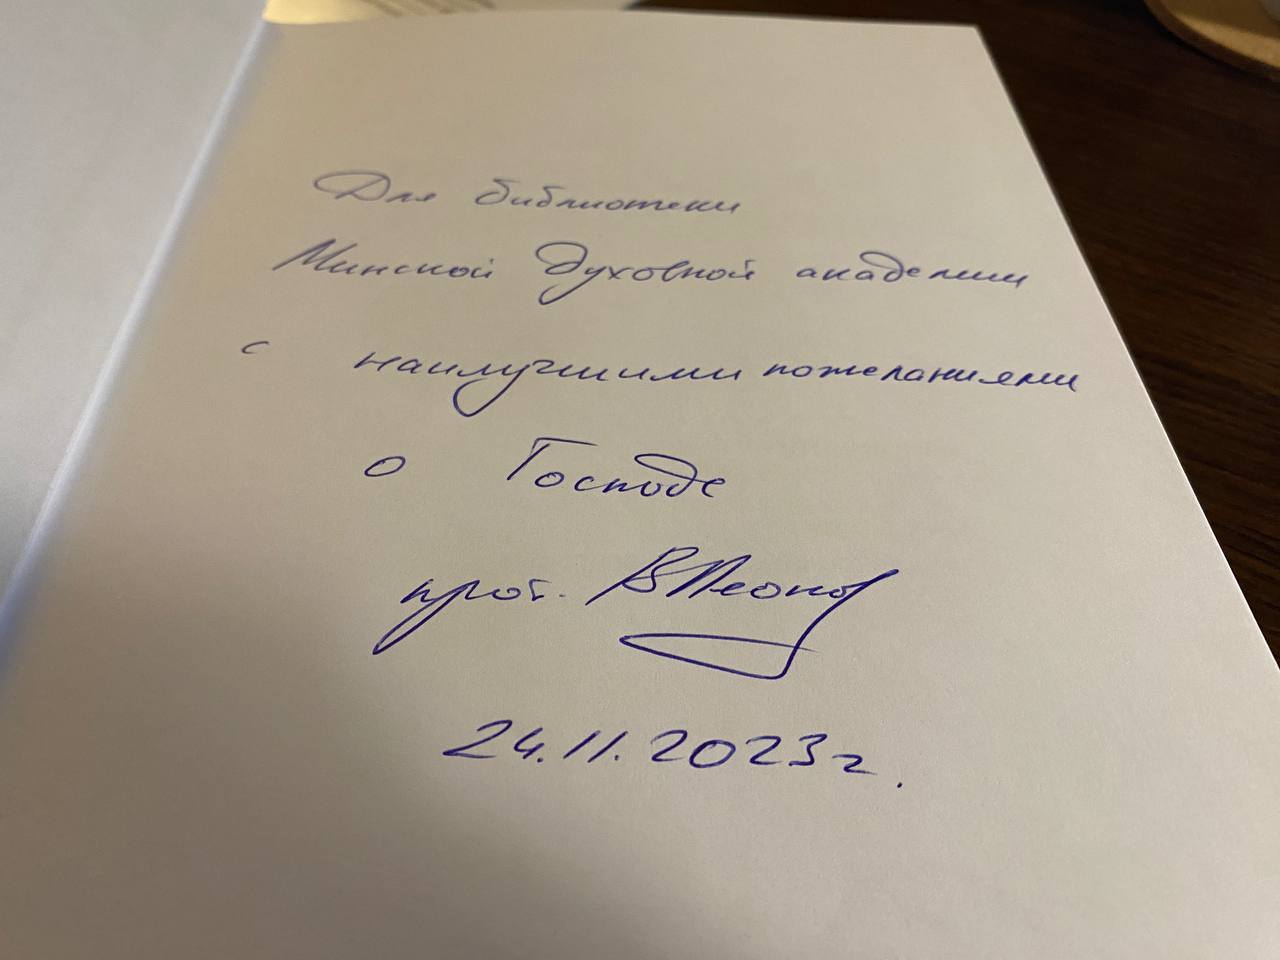 Для библиотеки
Минской духовной академии
с наилучшими пожеланиями
о Господе
прот. В Леонов
24.11.2023 г.